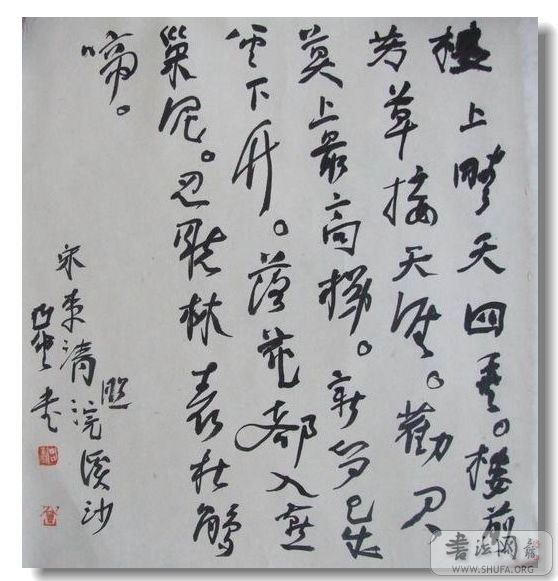 樓上晴天四垂。樓前
芳草接天涯。勸君
莫上最高梯。新笋已成
堂下竹。落花都入燕
巢泥。忍聽林表杜鵑
啼。
宋李清照浣溪沙
書
书法网
WWW.SHUFA.ORG